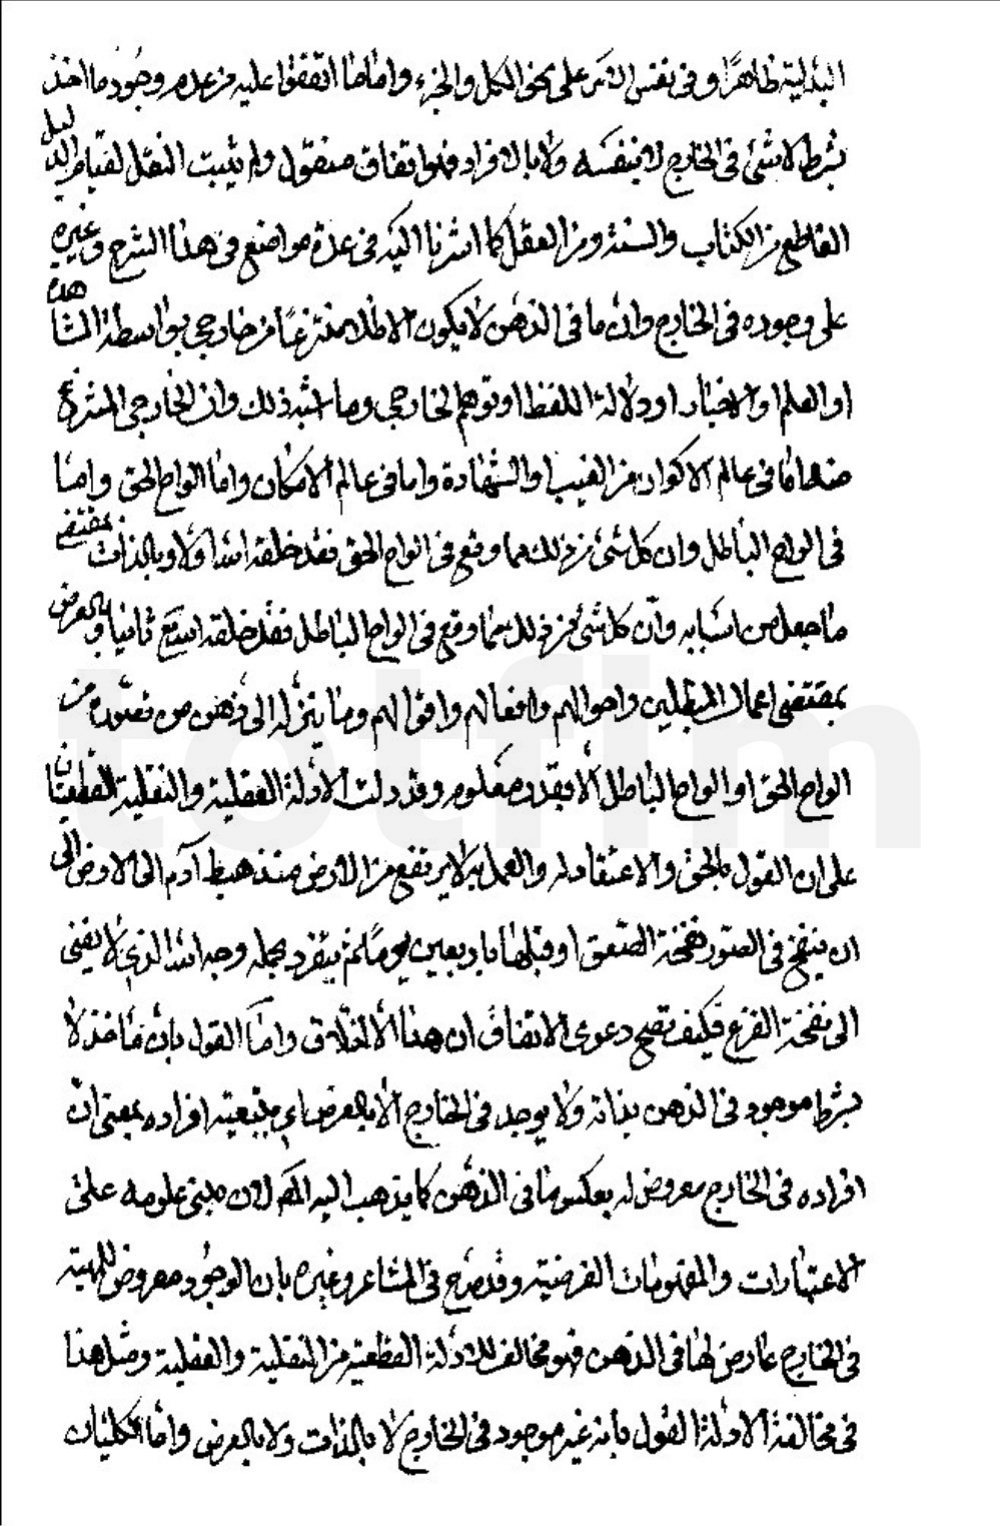 البدلية ظاهرًا وفى نفس الامر على نحو الكل والجزء واما ما اتفقوا عليه من عدم وجود ما اخذ
بشرط لا شئ فى الخارج لا بنفسه ولا بالافراد فهو اتفاق منقول ولم يثبت النقل لقيام الدليل
القاطع من الكتاب والسنة ومن العقل كما اشرنا اليه فى عدة مواضع فى هذا الشرح وغيره
على وجوده فى الخارج وان ما فى الذهن لا يكون الا ظلا منتزعًا من خارجى بواسطة المشاهدة
او العلم او الاخبار او دلالة اللفظ او توهم الخارجى وما اشبه ذلك وان الخارجى المنتزع
منه اما فى عالم الاكوان من الغيب او الشهادة واما فى عالم الامكان واما الواح الحق واما
فى الواح الباطل وان كل شئ من ذلك مما وقع فى الواح الحق فقد خلقه الله اولا وبالذات بمقتضى
ما جعل من اسبابه وان كل شئ من ذلك مما وقع فى الواح الباطل فقد خلقه الله ثانيا وبالعرض
بمقتضى اعمال المبطلين واحوالهم وافعالهم واقوالهم وما ينزله الى ذهن من تصوره من
الواح الحق او الواح الباطل الا بقدر معلوم وقد دلت الادلة العقلية والنقلية القطعيتان
على ان القول بالحق والاعتقاد له والعمل به لا يرتفع من الارض منذ هبط آدم الى الارض الى
ان ينفخ فى الصور نفخة الصعق او قبلها باربعين يومًا ثم يتفرد بحمله وجه الله الذى لا يفنى
الى نفخة الفزع فكيف تصح دعوى الاتفاق ان هذا الا اختلاق واما القول بان ما اخذ لا
بشرط موجود فى الذهن بذاته ولا يوجد فى الخارج الا بالعرض اى بتبعية افراده بمعنى ان
افراده فى الخارج معروض له بعكس ما فى الذهن كما يذهب اليه المص لان مبنى علومه على
الاعتبارات والمفهومات الفرضية وقد صرح فى المشاعر وغيره بان الوجود معروض للمهية
فى الخارج عارض لها فى الذهن فهو مخالف للادلة القطعية من النقلية والعقلية ومثل هذا
فى مخالفة الادلة القول بانه غير موجود فى الخارج لا بالذات ولا بالعرض واما الكليات